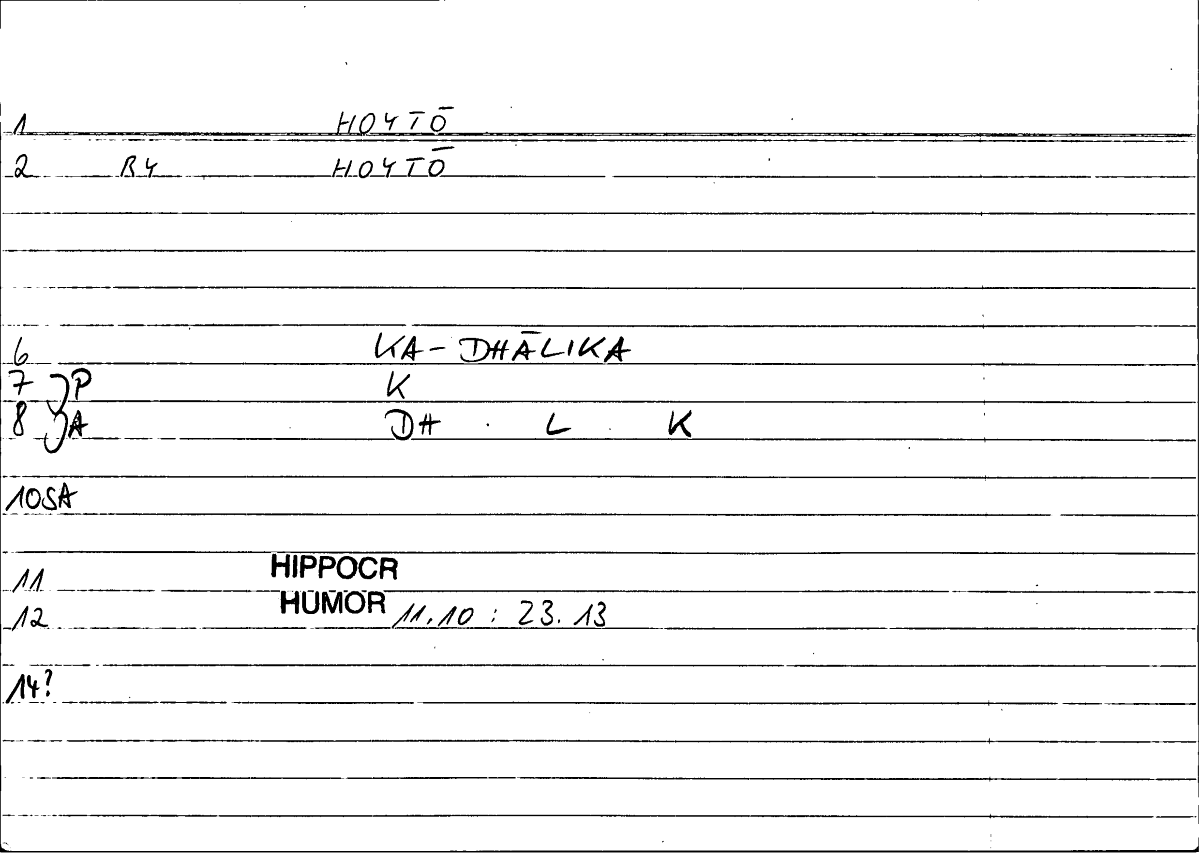 1 HO4TŌ
2 B4 HO4TŌ
6 KA-DHĀLIKA
7 P K
8 A DH L K
10SA
11 HIPPOCR
12 HUMOR 11.10 : 23.13
14?